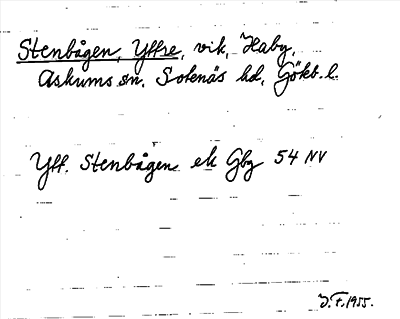 Stenbågen, Yttre, vik, Haby,
Askums sn. Sotenäs hd, Göteb. l.
Ytt. Stenbågen ek Gbg 54 NV
J.F. 1955.